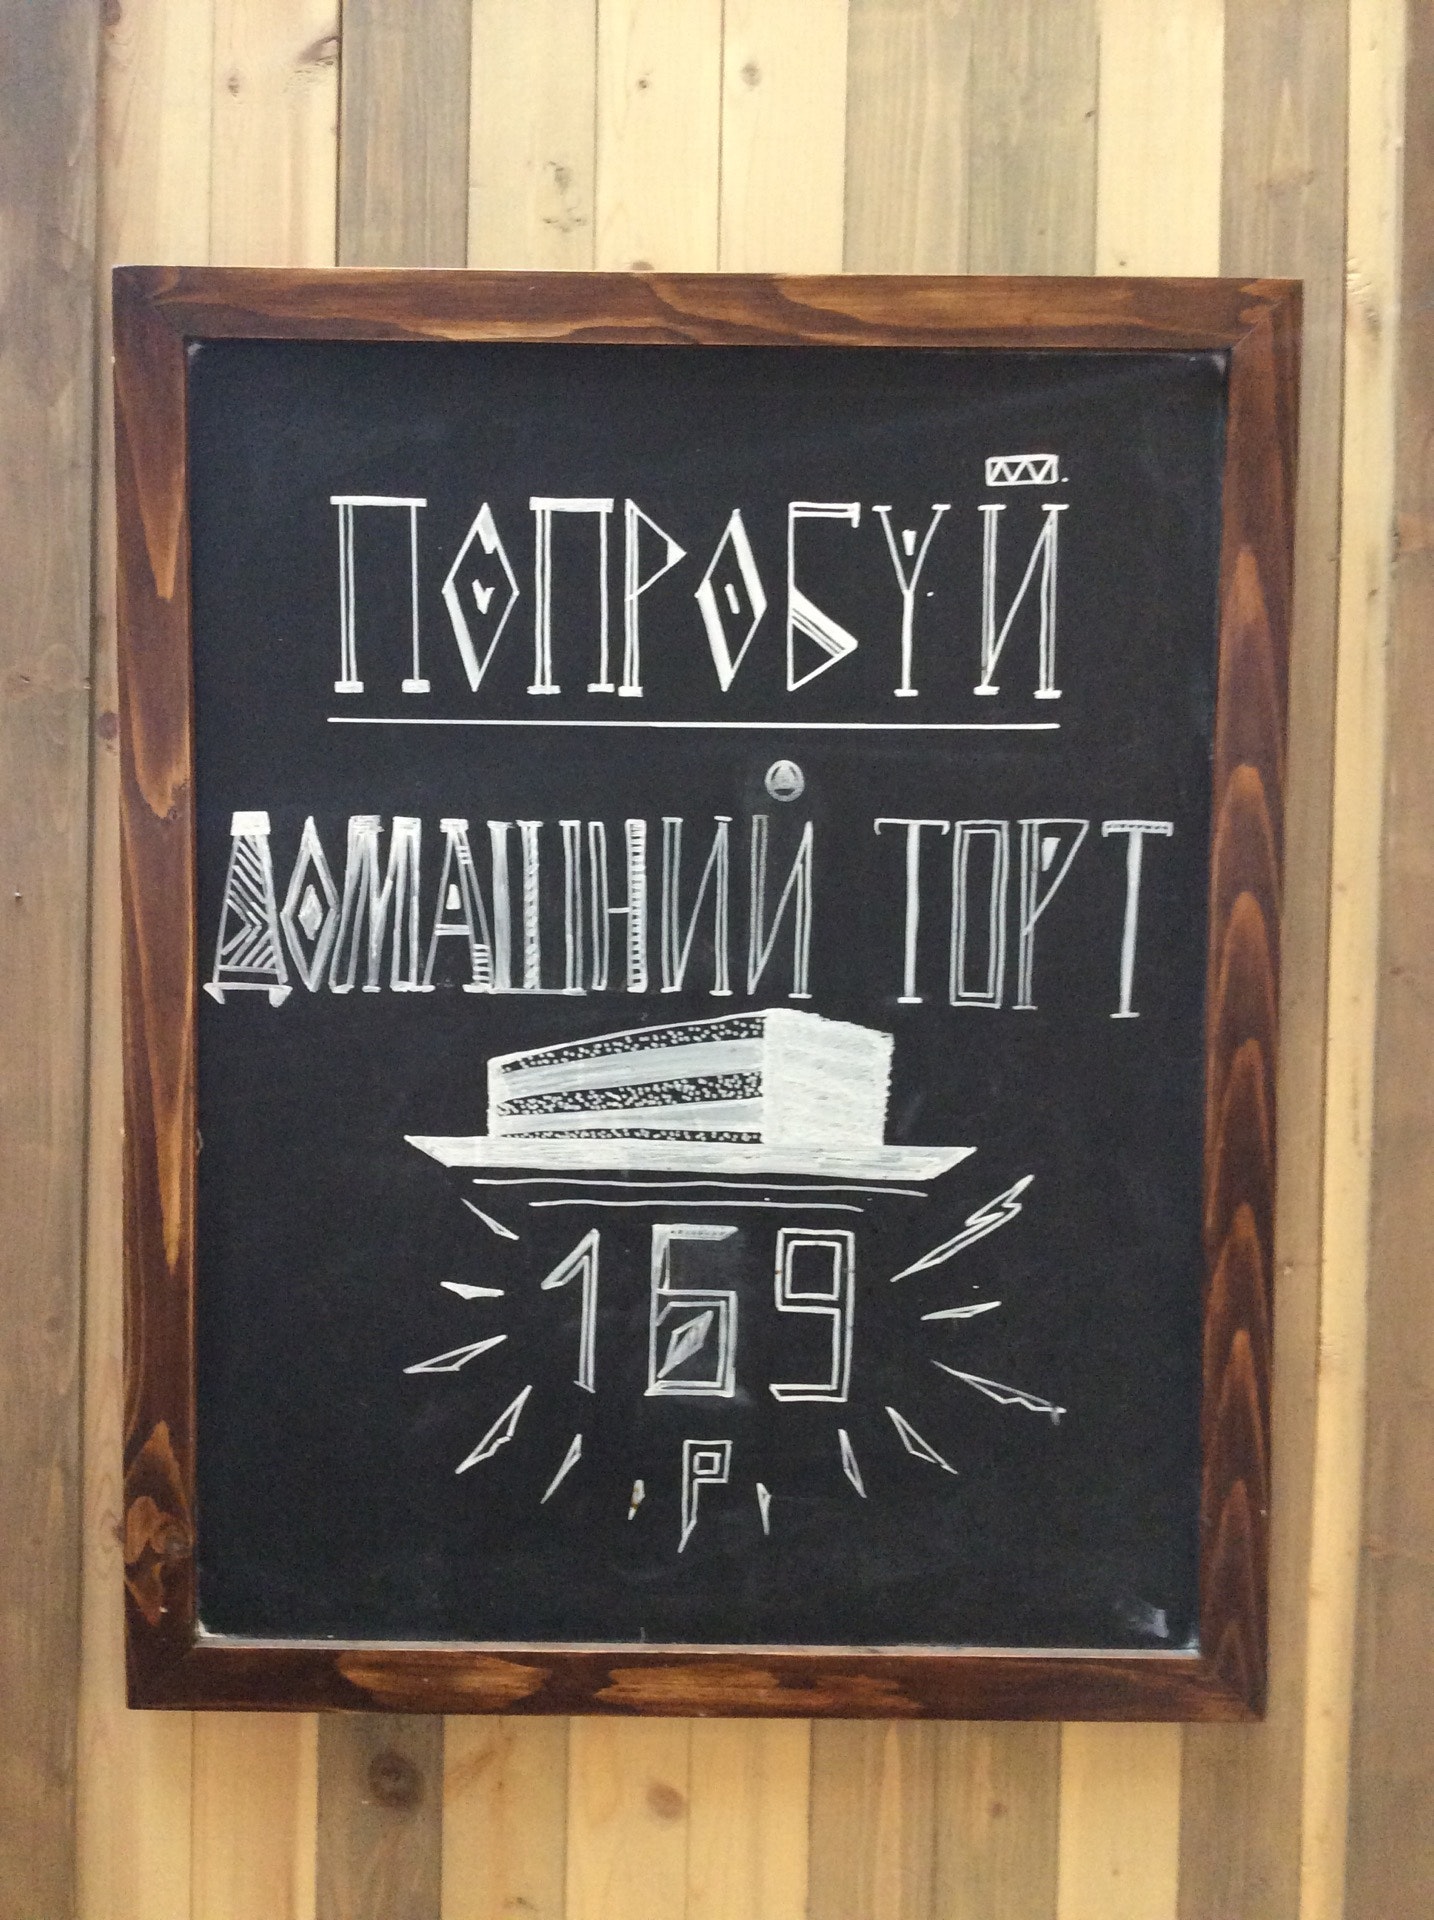 ПОПРОБУЙ
ДОМАШНИЙ ТОРТ
169
Р